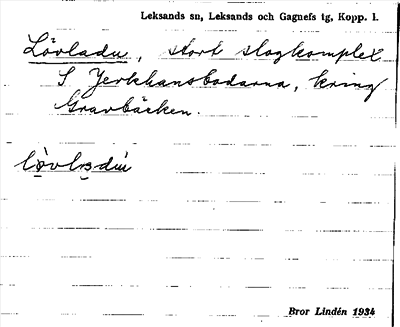 Leksands sn, Leksands och Gagnefs tg, Kopp. l.
Lövladu, stort slogkomplex
S Jerkhansbodarna, kring
Gravbäcken.
Bror Lindén 1934